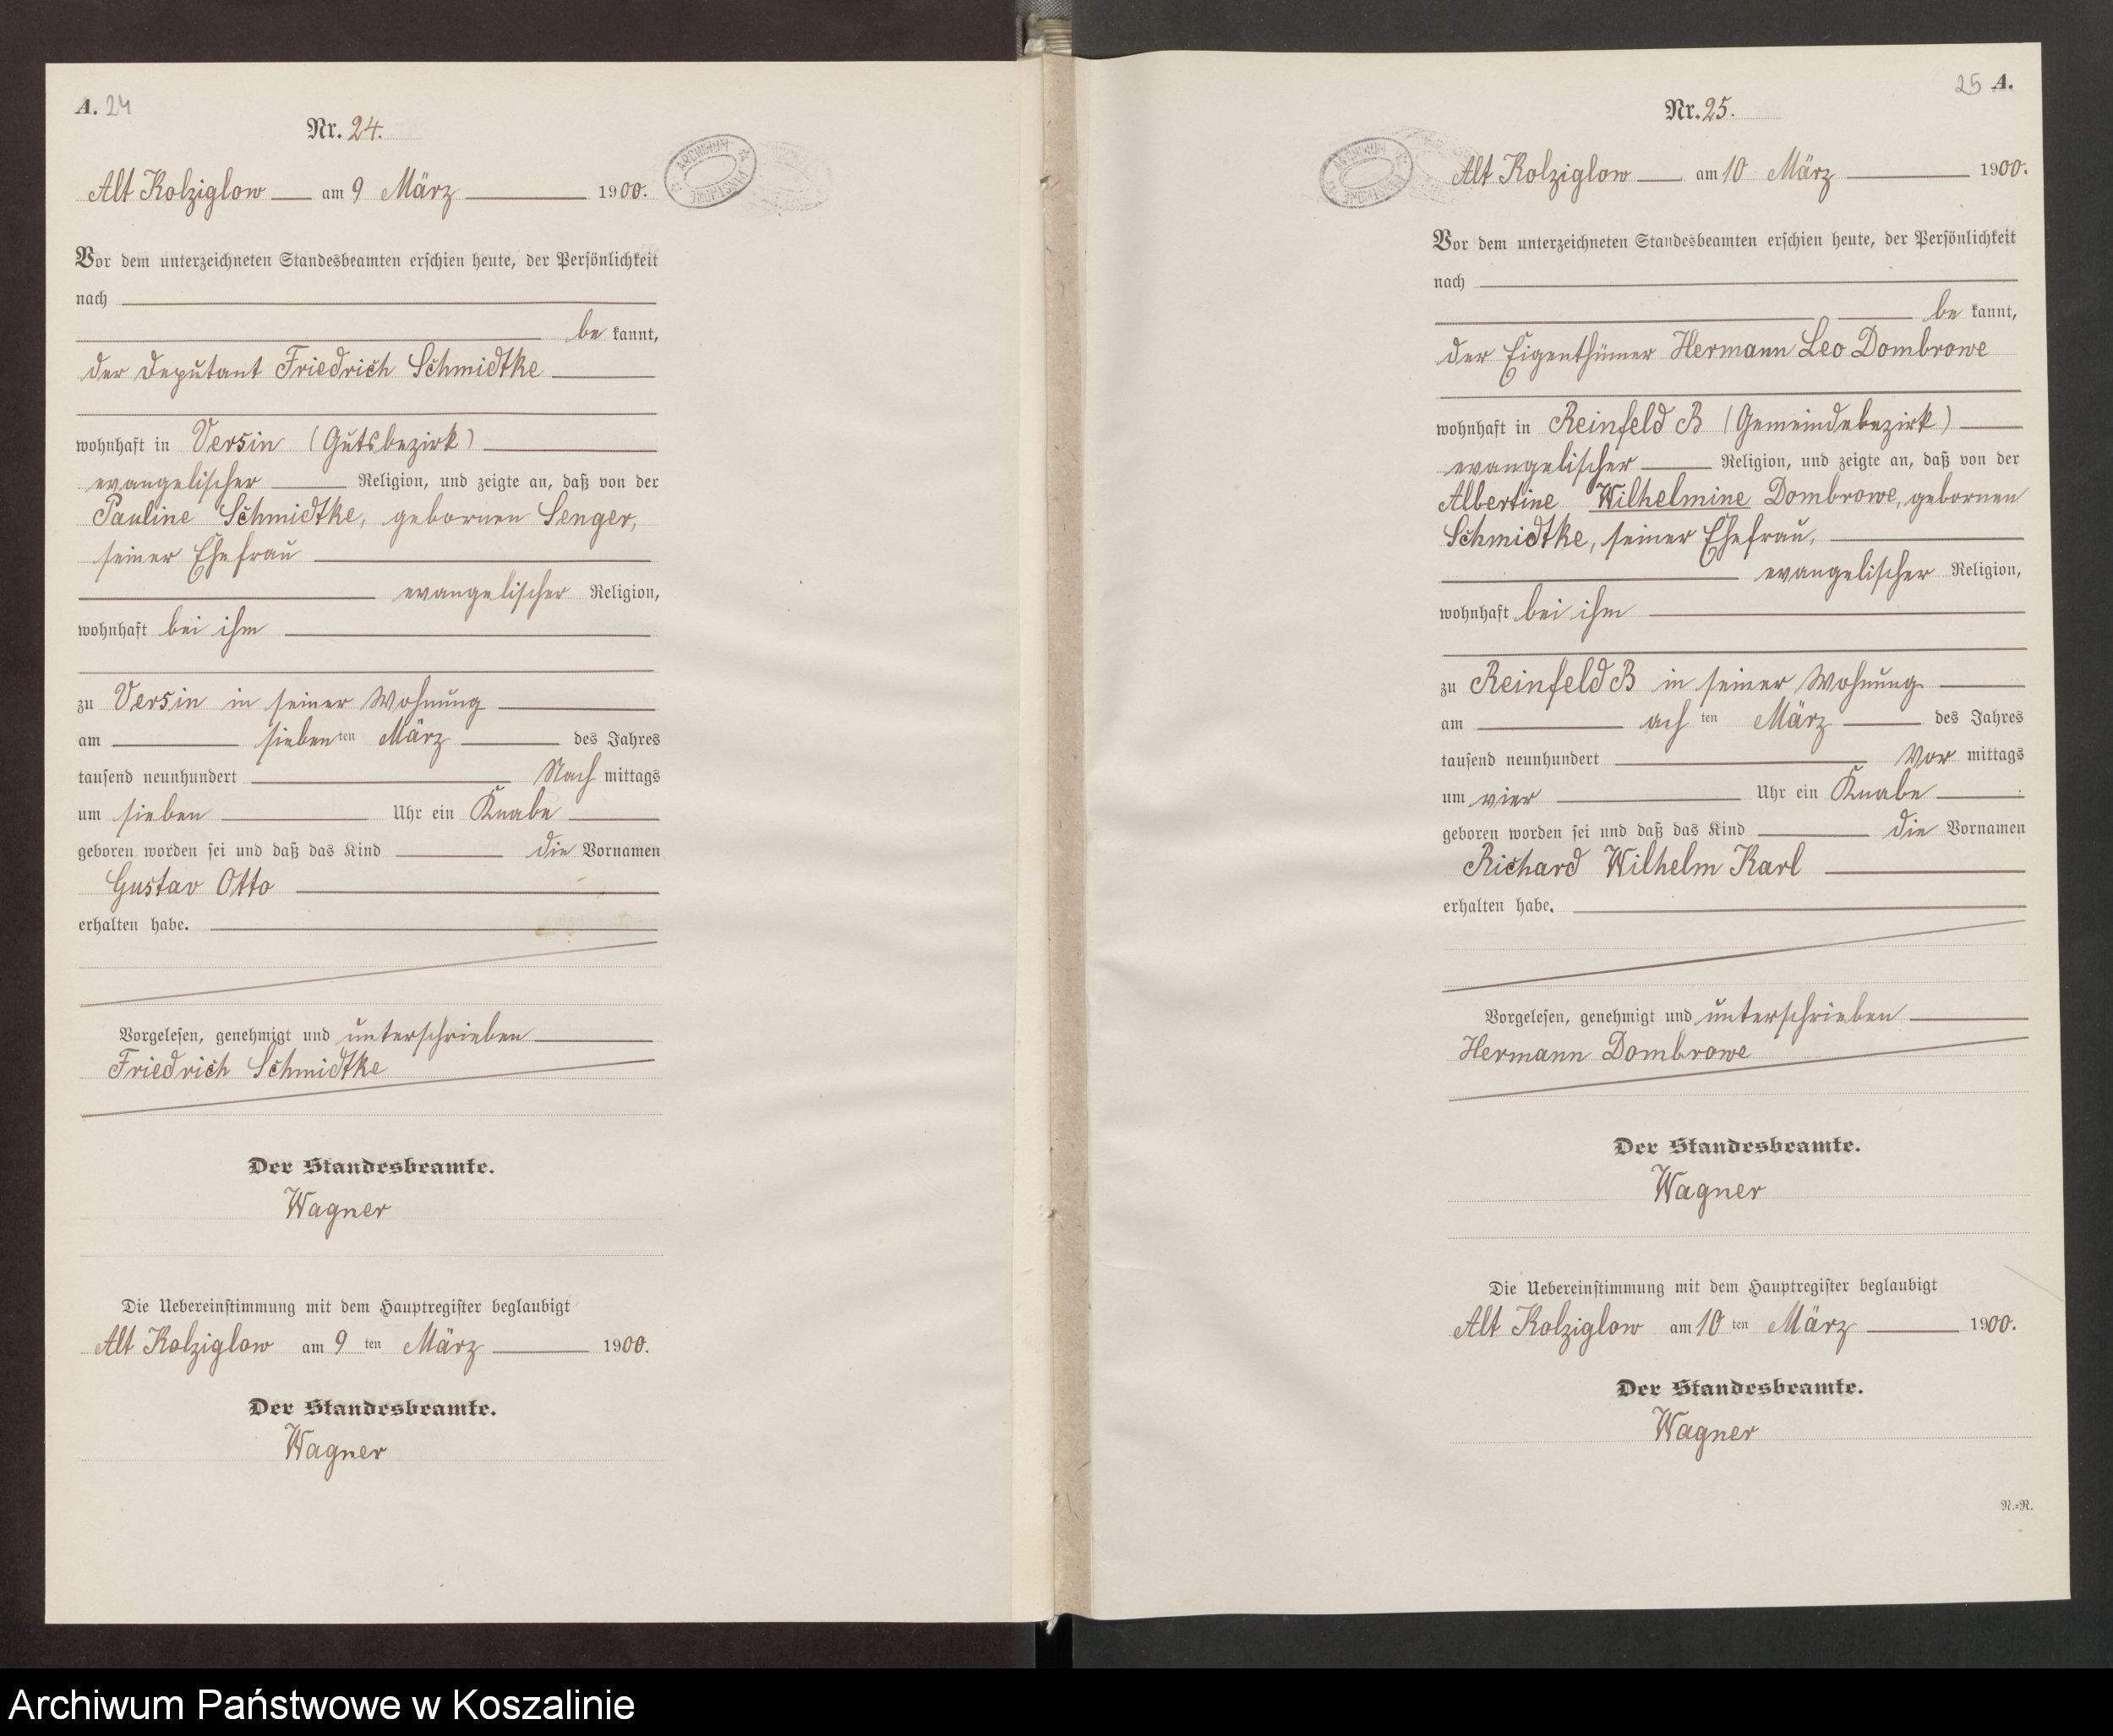 A. 24
Nr. 24.
Alt Kolziglow am 9 März 1900.
Vor dem unterzeichneten Standesbeamten erschien heute, der Persönlichkeit
nach
be kannt,
der Deputant Friedrich Schmidtke
wohnhaft in Versin (Gutsbezirk)
evangelischer Religion, und zeigte an, daß von der
Pauline Schmidtke, gebornen Senger,
seiner Ehefrau
evangelischer Religion,
wohnhaft bei ihm
zu Versin in seiner Wohnung
am sieben ten März des Jahres
tausend neunhundert Nach mittags
um sieben Uhr ein Knabe
geboren worden sei und daß das Kind die Vornamen
Gustav Otto
erhalten habe.
Vorgelesen, genehmigt und unterschrieben
Friedrich Schmidtke
Der Standesbeamte.
Wagner
Die Uebereinstimmung mit dem Hauptregister beglaubigt
Alt Kolziglow am 9 ten März 1900.
Der Standesbeamte.
Wagner
ARCHIWUM
25 A.
Nr. 25.
ARCHIWUM
Alt Kolziglow am 10 März 1900.
Vor dem unterzeichneten Standesbeamten erschien heute, der Persönlichkeit
nach
be kannt,
der Eigenthümer Hermann Leo Dombrowe
wohnhaft in Reinfeld B (Gemeindebezirk)
evangelischer Religion, und zeigte an, daß von der
Albertine Wilhelmine Dombrowe, gebornen
Schmidtke, seiner Ehefrau,
evangelischer Religion,
wohnhaft bei ihm
zu Reinfeld B in seiner Wohnung
am ach ten März des Jahres
tausend neunhundert Vor mittags
um vier Uhr ein Knabe
geboren worden sei und daß das Kind die Vornamen
Richard Wilhelm Karl
erhalten habe.
Vorgelesen, genehmigt und unterschrieben
Hermann Dombrowe
Der Standesbeamte.
Wagner
Die Uebereinstimmung mit dem Hauptregister beglaubigt
Alt Kolziglow am 10 ten März 1900.
Der Standesbeamte.
Wagner
N.=R.
Archiwum Państwowe w Koszalinie